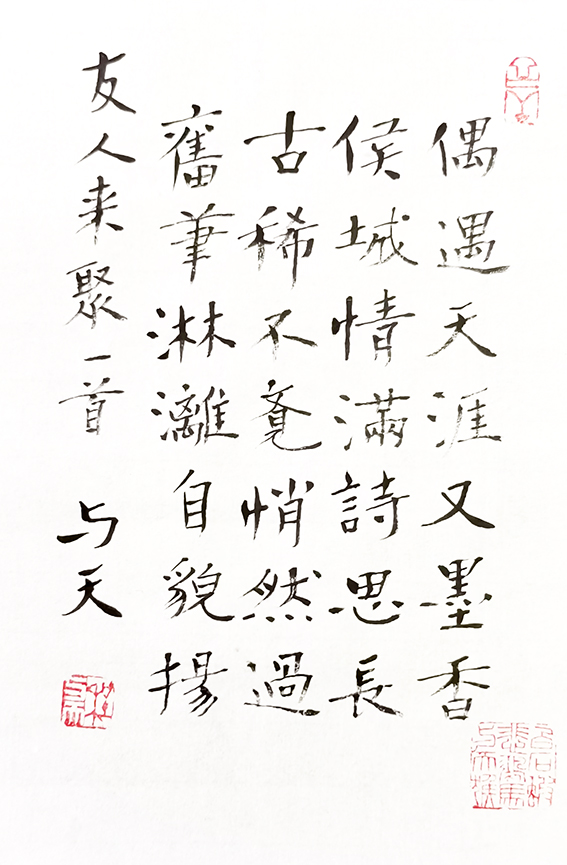 偶遇天涯又墨香
侯城情滿詩思長
古稀不覓悄然過
舊筆淋漓自貌揚
友人来聚一首
与天